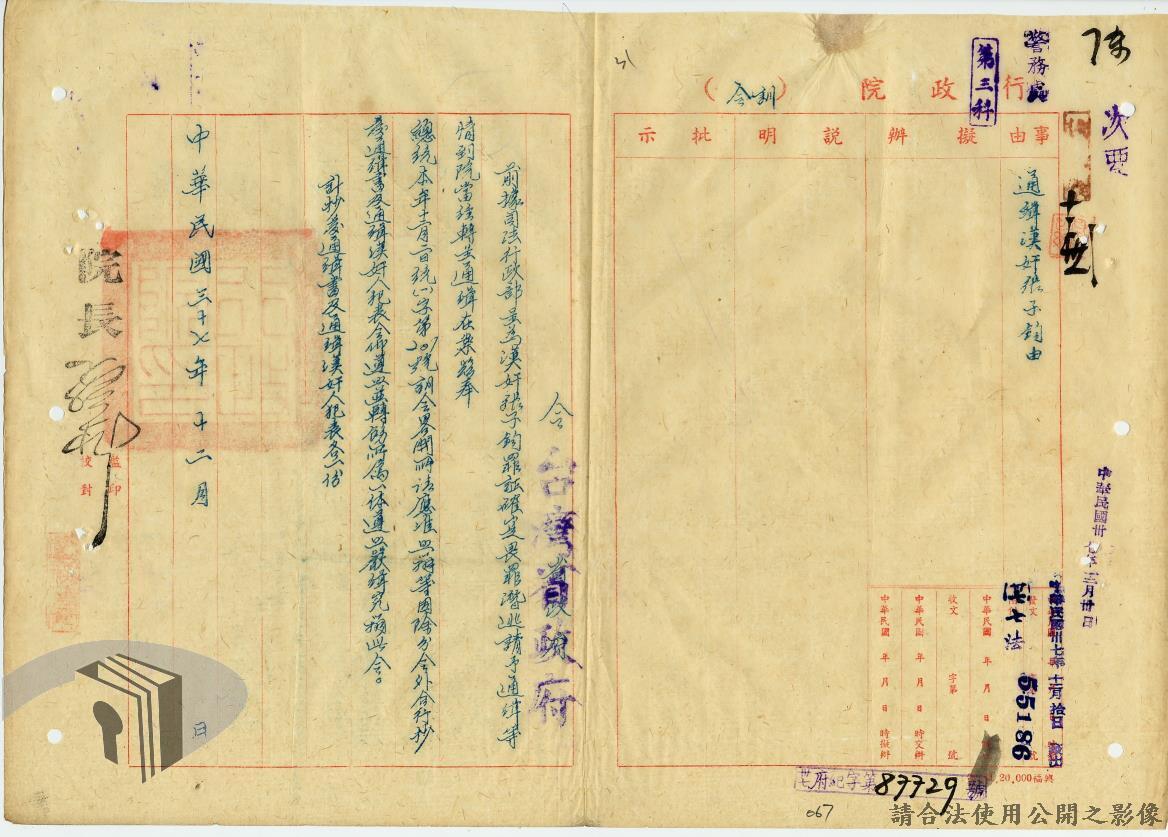 警務處
次要
第三科
行政院(訓令)
事由
擬辦
說明
批示
通緝漢奸張子鈞由
中華民國卅七年十二月拾日發出
發文
卅七法
55186
收文
字第
號
中華民國 年 月 日 時交辦
中華民國 年 月 日 時擬辦
中華民國 年 月 日
府紀字第87729號
興福20,000
令 台灣省政府
前據司法行政部呈為漢奸張子鈞罪証確定畏罪潛逃請予通緝等
情到院當經轉呈通緝在案茲奉
總統本年十二月二日統一字第207號訓令畧開所請應准照辦等因除分令外合行抄
發通緝書及通緝漢奸人犯表令仰遵照並轉飭所屬一体遵照嚴緝究辦此令。
計抄發通緝書及通緝漢奸人犯表各一份
中華民國三十七年十二月 日
院長
監印
校對
067
請合法使用公開之影像